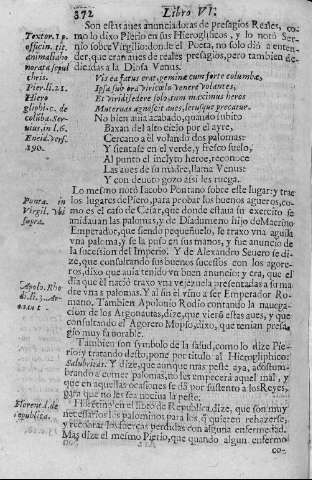 372 Libro VI.
Son estas aues anunciadoras de presagios Reales, co-
mo lo dixo Pierio en sus Hieroglificos, y lo notó Ser-
uio sobre Virgilio: donde el Poeta, no solo dió a enten-
der, que eran aues de reales presagios, pero tambien de-
dicadas a la Diosa Venus.
Textor. 10.
officin. tit.
animalia ho
norata sepul
chris.
Pier. li. 21.
Hiero
gliphi. c. de
colūba. Ser-
uius, in l. 6.
Eneid. vers.
190.
Vix ea fatus erat, gemina cum forte columbæ,
Ipsa sub ora viri cœlo venere volantes,
Et viridi sedere solo, tum maximus heros
Maternas agnoscit aues, lætusque precatur.
No bien auia acabado, quando subito
Baxan del alto cielo por el ayre,
Cercano a èl volando dos palomas:
Y sientase en el verde, y fresco suelo,
Al punto el inclyto heroe, reconoce
Las aues de su madre, llama Venus:
Y con deuoto gozo assi les ruega.
Lo mesmo notó Iacobo Pontano sobre este lugar: y trae
los lugares de Piero, para probar los buenos agueros, co-
mo es el caso de Cesar, que donde estaua su exercito se
anidauan las palomas, y de Diadumeno hijo de Macrino
Emperador, que siendo pequeñuelo, le traxo vna aguila
vna paloma, y se la puso en sus manos, y fue anuncio de
la sucession del Imperio. Y de Alexandro Seuero se di-
ze, que consultando sus buenos sucessos con los agore-
ros, dixo que auia tenido vn buen anuncio: y era, que el
dia que èl nació traxo vna vejezuela presentadas a su ma
dre vnas palomas. Y al fin èl vino a ser Emperador Ro-
mano. Tambien Apolonio Rodio contando la nauega-
cion de los Argonautas, dize, que vierō estas aues, y que
consultando el Agorero Mopso, dixo, que tenian presa-
gio muy honorable.
Ponta. in
Virgil. vbi
supra.
Apolo. Rho
di. li. 3. Ar-
Tambien son symbolo de la salud, como lo dize Pie-
rio: y tratando desto, pone por titulo al Hierogliphico:
Salubritas. Y dize, que aunque mas peste aya, acostum-
brando a comer palomas, no les empecerà aquel mal, y
que en aquellas ocasiones se dà por sustento a los Reyes,
para que no les sea nociua la peste.
Florentino en el libro de Republica, dize, que son muy
necessarios los palominos para los que quieren rehazerse,
y recobrar las fuerças perdidas con alguna enfermedad.
Mas dize el mesmo Pierio, que quando algun enfermo
Florent. l. de
republica.
co-